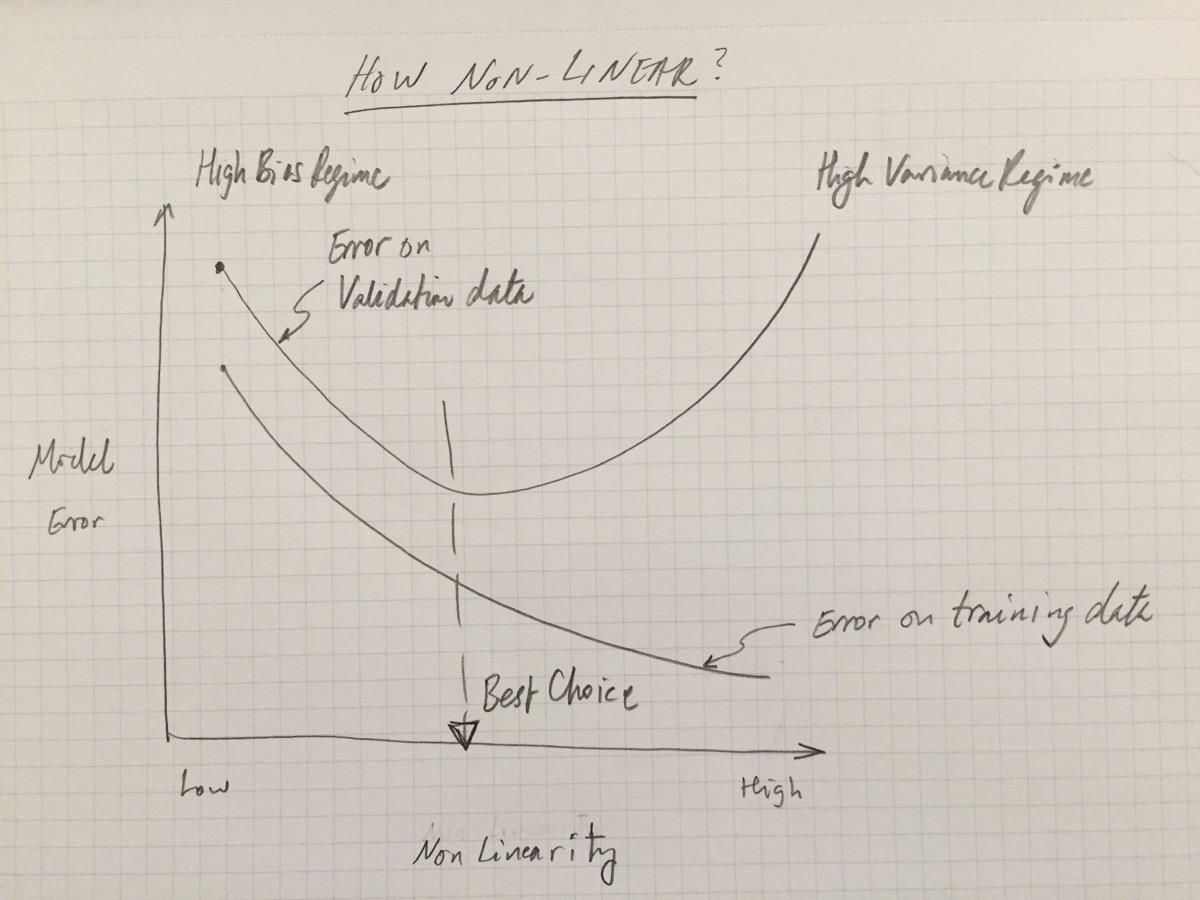 HOW NON-LINEAR?
High Bias Regime
High Variance Regime
Error on
Validation data
Model
Error
Error on training data
Best Choice
Low
High
Non Linearity